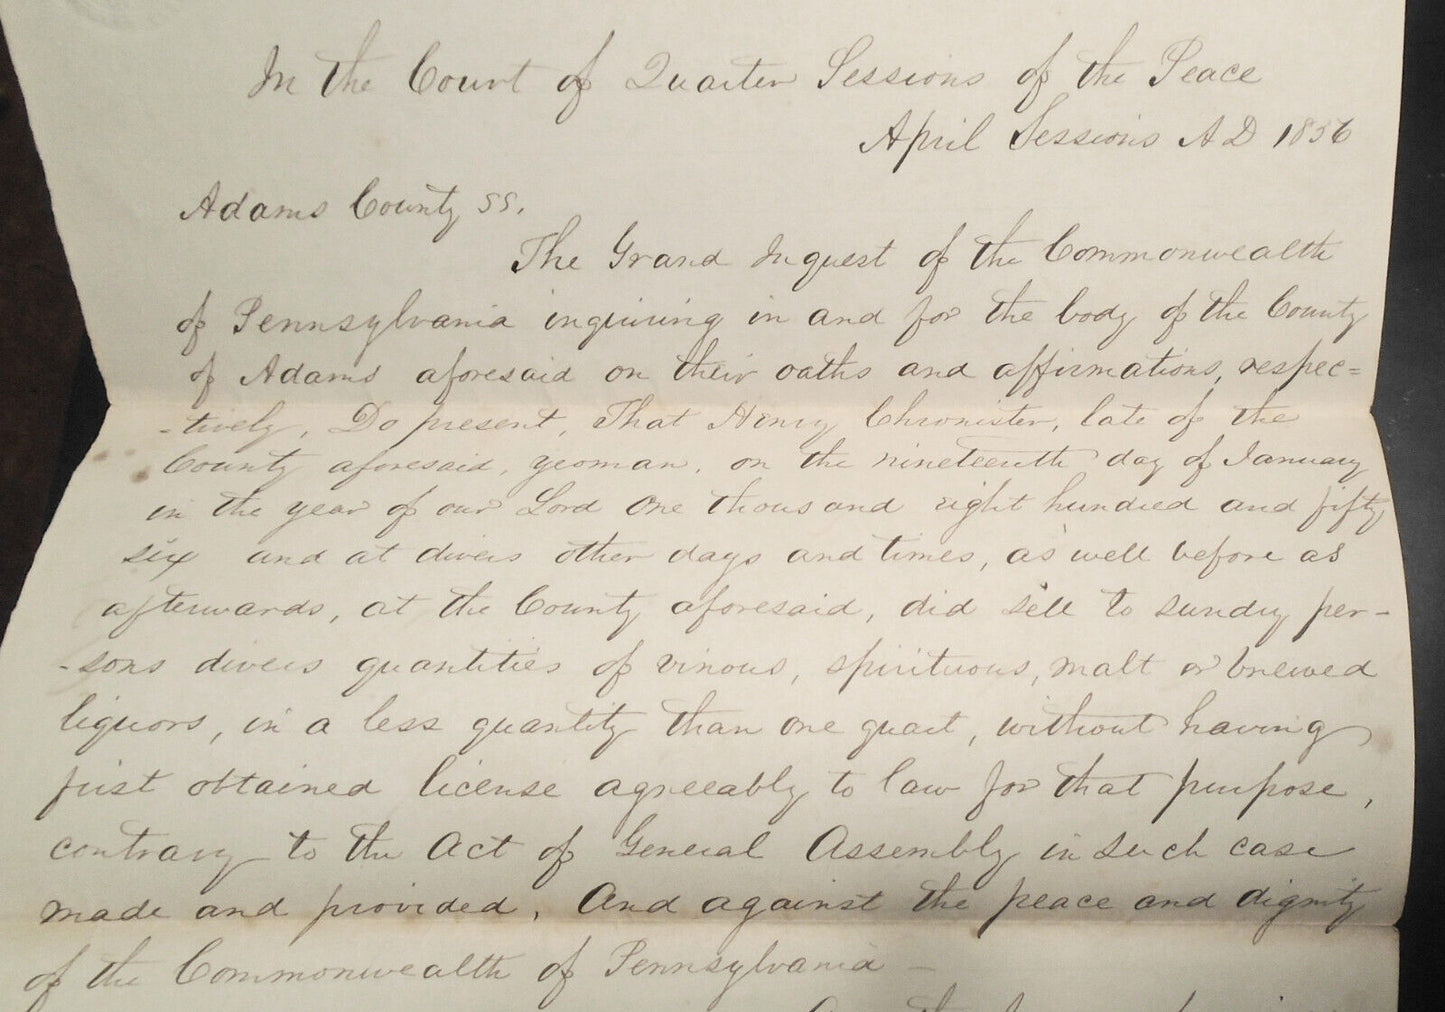 In the Court of Quarter Sessions of the Peace
April Sessions A D 1856
Adams County ss.
The Grand Inquest of the Commonwealth
of Pennsylvania inquiring in and for the body of the County
of Adams aforesaid on their oaths and affirmations, respec=
-tively, Do present, That Henry Chronister, late of the
County aforesaid, yeoman, on the nineteenth day of January
in the year of our Lord One thousand eight hundred and fifty
six and at divers other days and times, as well before as
afterwards, at the County aforesaid, did sell to sundry per-
-sons divers quantities of vinous, spirituous, malt or brewed
liquors, in a less quantity than one quart, without having
first obtained license agreeably to law for that purpose,
contrary to the Act of General Assembly in such case
made and provided. And against the peace and dignity
of the Commonwealth of Pennsylvania -